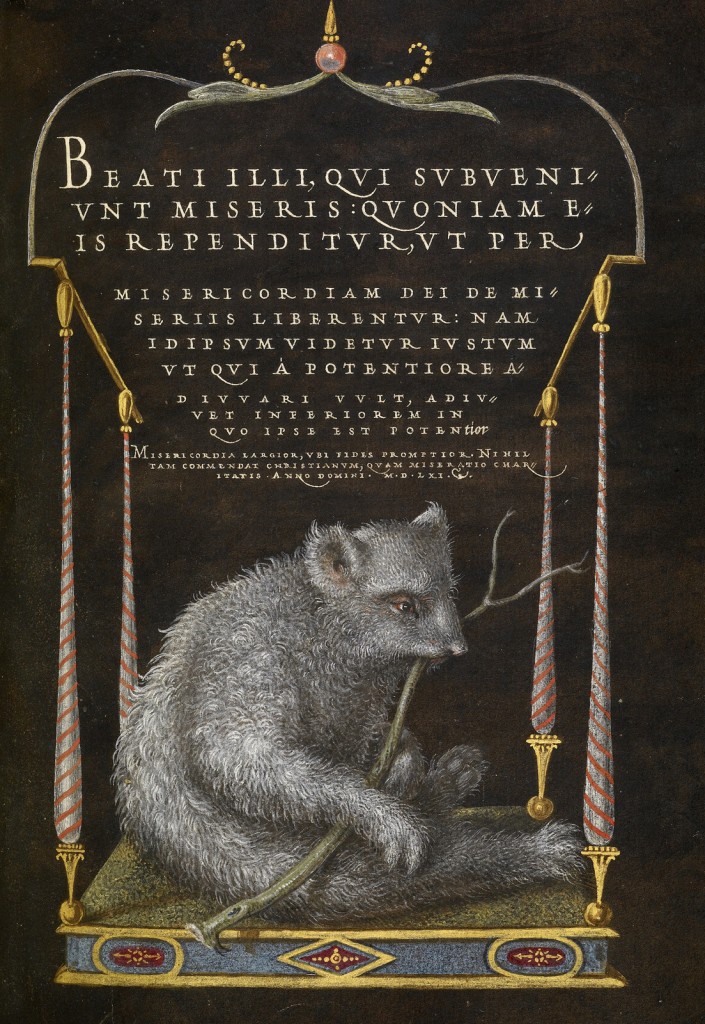 BEATI ILLI, QVI SVBVENI//
VNT MISERIS: QVONIAM E//
IS REPENDITVR, VT PER
MISERICORDIAM DEI DE MI//
SERIIS LIBERENTVR: NAM
ID IPSVM VIDETVR IVSTVM
VT QVI Á POTENTIORE A//
DIVVARI VVLT, ADIV//
VET INFERIOREM IN
QVO IPSE EST POTENtior
MISERICORDIA LARGIOR, VBI FIDES PROMPTIOR. NIHIL
TAM COMMENDAT CHRISTIANVM, QVAM MISERATIO CHAR//
ITATIS. ANNO DOMINI. M.D.LXI.